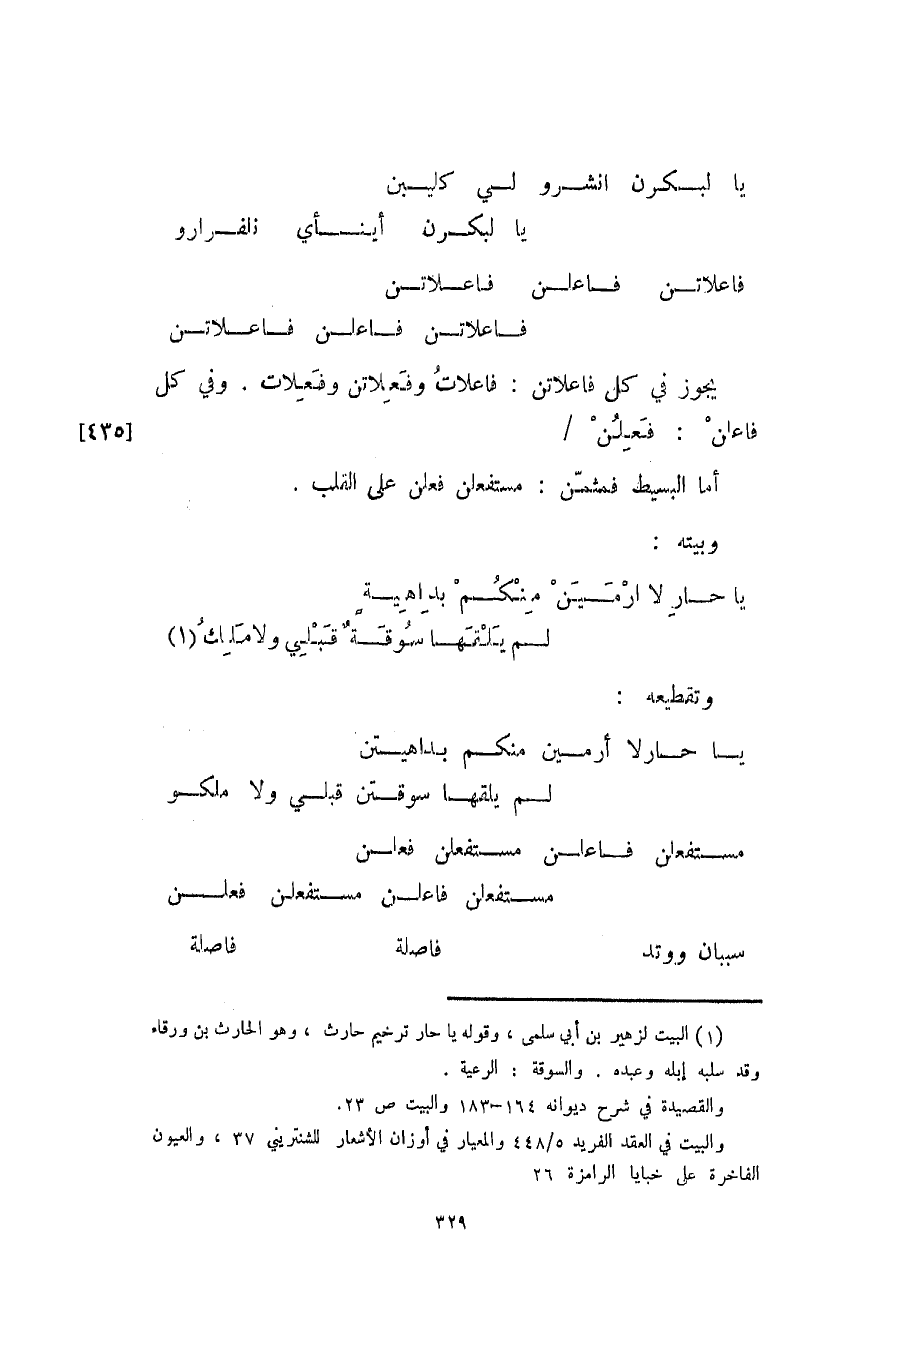 يا لبـكرن انشـرو لـي كليـبن
يا لبكـرن أينــأي نلفـرارو
فاعلاتـن فـاعلـن فـاعـلاتـن
فـاعلاتـن فـاعلـن فـاعـلاتـن
يجوز في كل فاعلاتن : فاعلاتُ وفَعِلاتن وفَعِلات . وفي كل
فاعلنْ : فَعِلُنْ / [٤٣٥]
أما البسيط فمثمّن : مستفعلن فعلن على القلب .
وبيته :
يا حـارِ لا ارْمَـيَنْ مِنْكُـمْ بداهِيـةٍ
لـم يَلْقَهـا سُوقَـةٌ قَبْلِي ولامَلِكُ(١)
وتقطيعه :
يـا حـارلا أرمـين منكـم بـداهيـتن
لـم يلقهـا سوقـتن قبلـي ولا ملكـو
مستفعلن فـاعلـن مستفعلن فعلـن
مستفعلن فاعلـن مستفعلن فعلـن
سببان ووتد فاصلة فاصلة
(١) البيت لزهير بن أبي سلمى ، وقوله يا حار ترخيم حارث ، وهو الحارث بن ورقاء
وقد سلبه إبله وعبده . والسوقة : الرعية .
والقصيدة في شرح ديوانه ١٦٤–١٨٣ والبيت ص ٢٣.
والبيت في العقد الفريد ٤٤٨/٥ والمعيار في أوزان الأشعار للشنتريني ٣٧ ، والعيون
الفاخرة على خبايا الرامزة ٢٦
٣٢٩